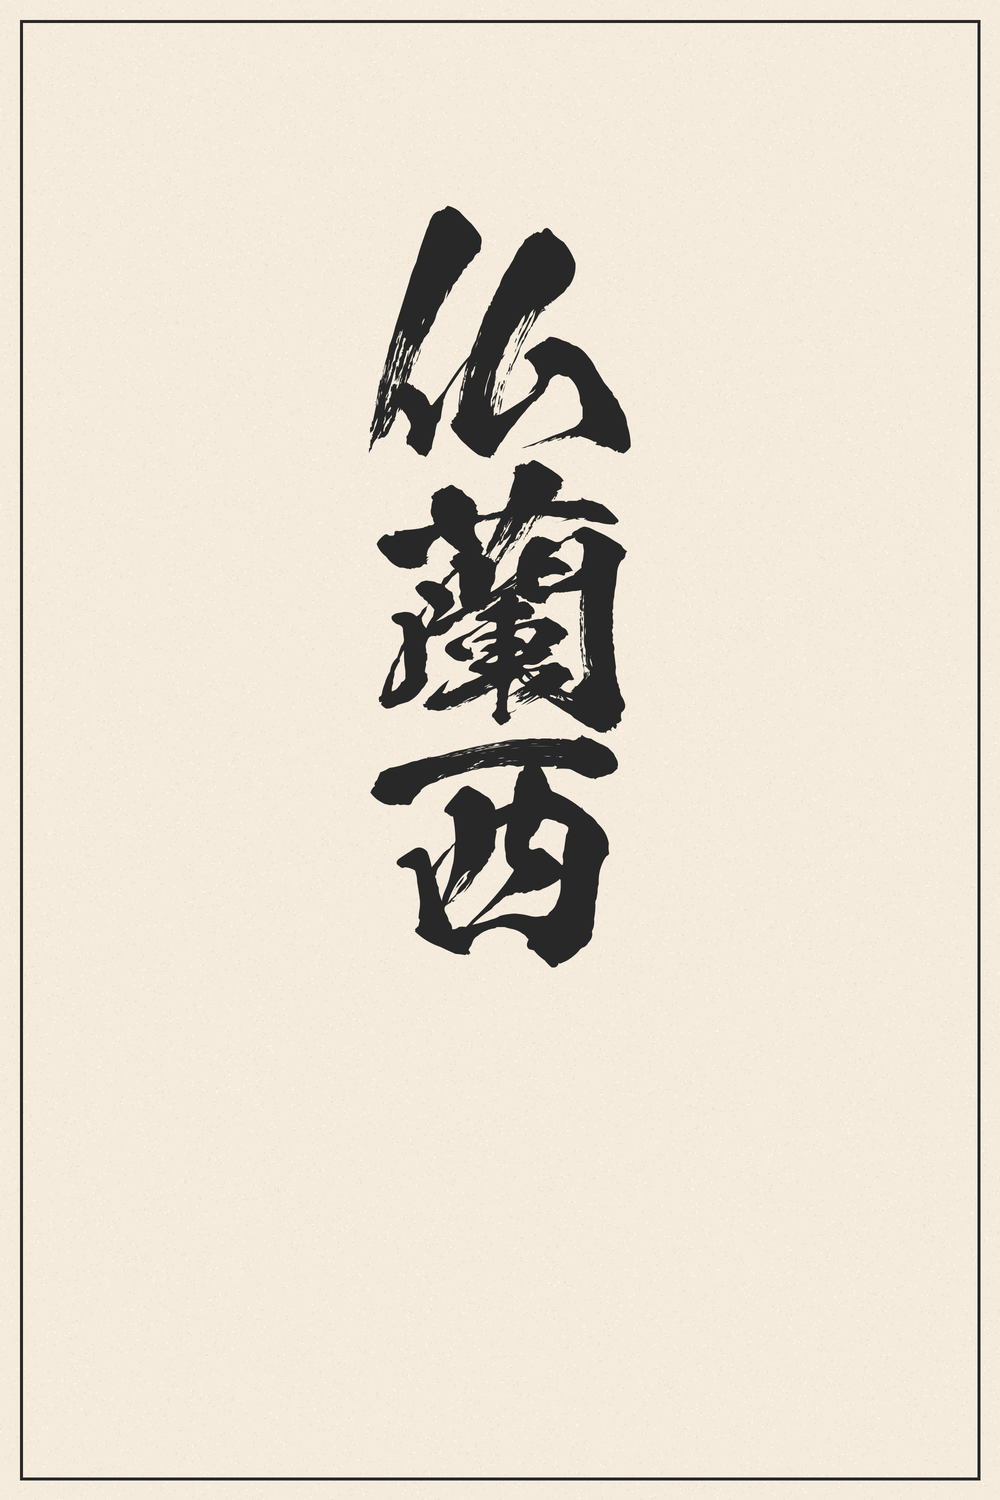 仏蘭西